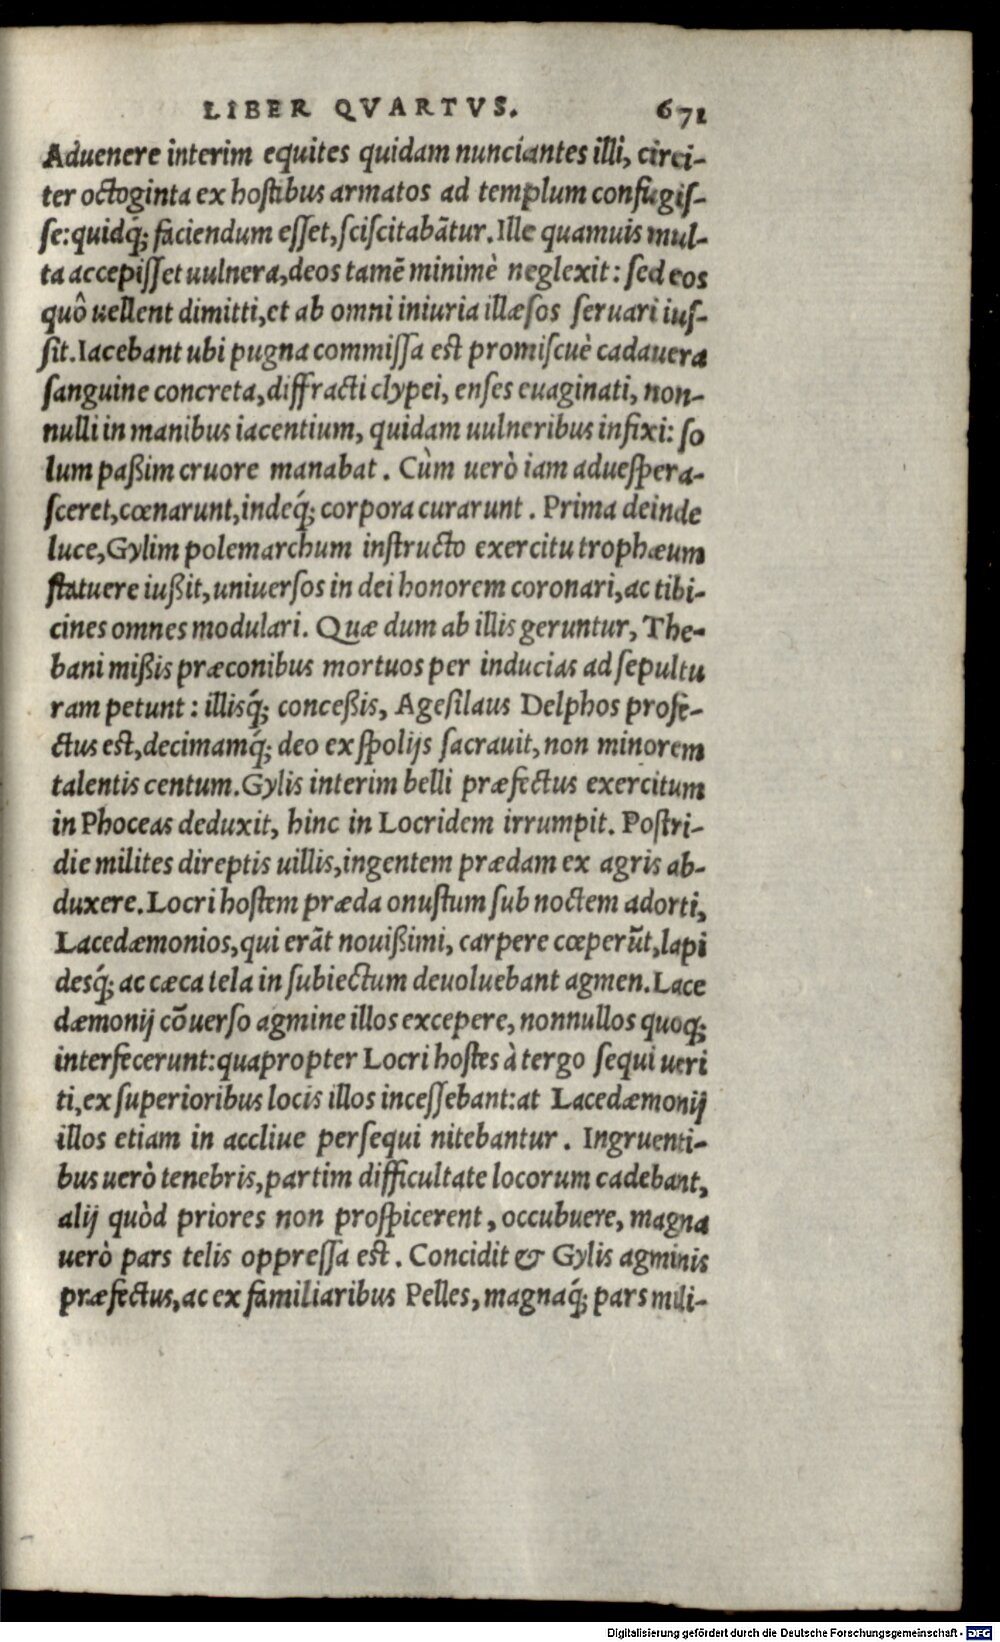 LIBER QVARTVS. 671
Aduenere interim equites quidam nunciantes illi, circi-
ter octoginta ex hostibus armatos ad templum confugis-
se: quidq́; faciendum esset, sciscitabãtur. Ille quamuis mul-
ta accepisset uulnera, deos tamẽ minimè neglexit: sed eos
quô uellent dimitti, et ab omni iniuria illæsos seruari ius-
sit. Iacebant ubi pugna commissa est promiscuè cadauera
sanguine concreta, diffracti clypei, enses euaginati, non-
nulli in manibus iacentium, quidam uulneribus infixi: so
lum paßim cruore manabat. Cùm uerò iam aduespera-
sceret, cœnarunt, indeq́; corpora curarunt. Prima deinde
luce, Gylim polemarchum instructo exercitu trophæum
statuere iußit, uniuersos in dei honorem coronari, ac tibi-
cines omnes modulari. Quæ dum ab illis geruntur, The-
bani mißis præconibus mortuos per inducias ad sepultu
ram petunt: illisq́; conceßis, Agesilaus Delphos profe-
ctus est, decimamq́; deo ex spolijs sacrauit, non minorem
talentis centum. Gylis interim belli præfectus exercitum
in Phoceas deduxit, hinc in Locridem irrumpit. Postri-
die milites direptis uillis, ingentem prædam ex agris ab-
duxere. Locri hostem præda onustum sub noctem adorti,
Lacedæmonios, qui erãt nouißimi, carpere cœperũt, lapi
desq́; ac cæca tela in subiectum deuoluebant agmen. Lace
dæmonij cõuerso agmine illos excepere, nonnullos quoq;
interfecerunt: quapropter Locri hostes à tergo sequi ueri
ti, ex superioribus locis illos incessebant: at Lacedæmonij
illos etiam in accliue persequi nitebantur. Ingruenti-
bus uerò tenebris, partim difficultate locorum cadebant,
alij quòd priores non prospicerent, occubuere, magna
uerò pars telis oppressa est. Concidit & Gylis agminis
præfectus, ac ex familiaribus Pelles, magnaq́; pars mili-
Digitalisierung gefördert durch die Deutsche Forschungsgemeinschaft - DFG